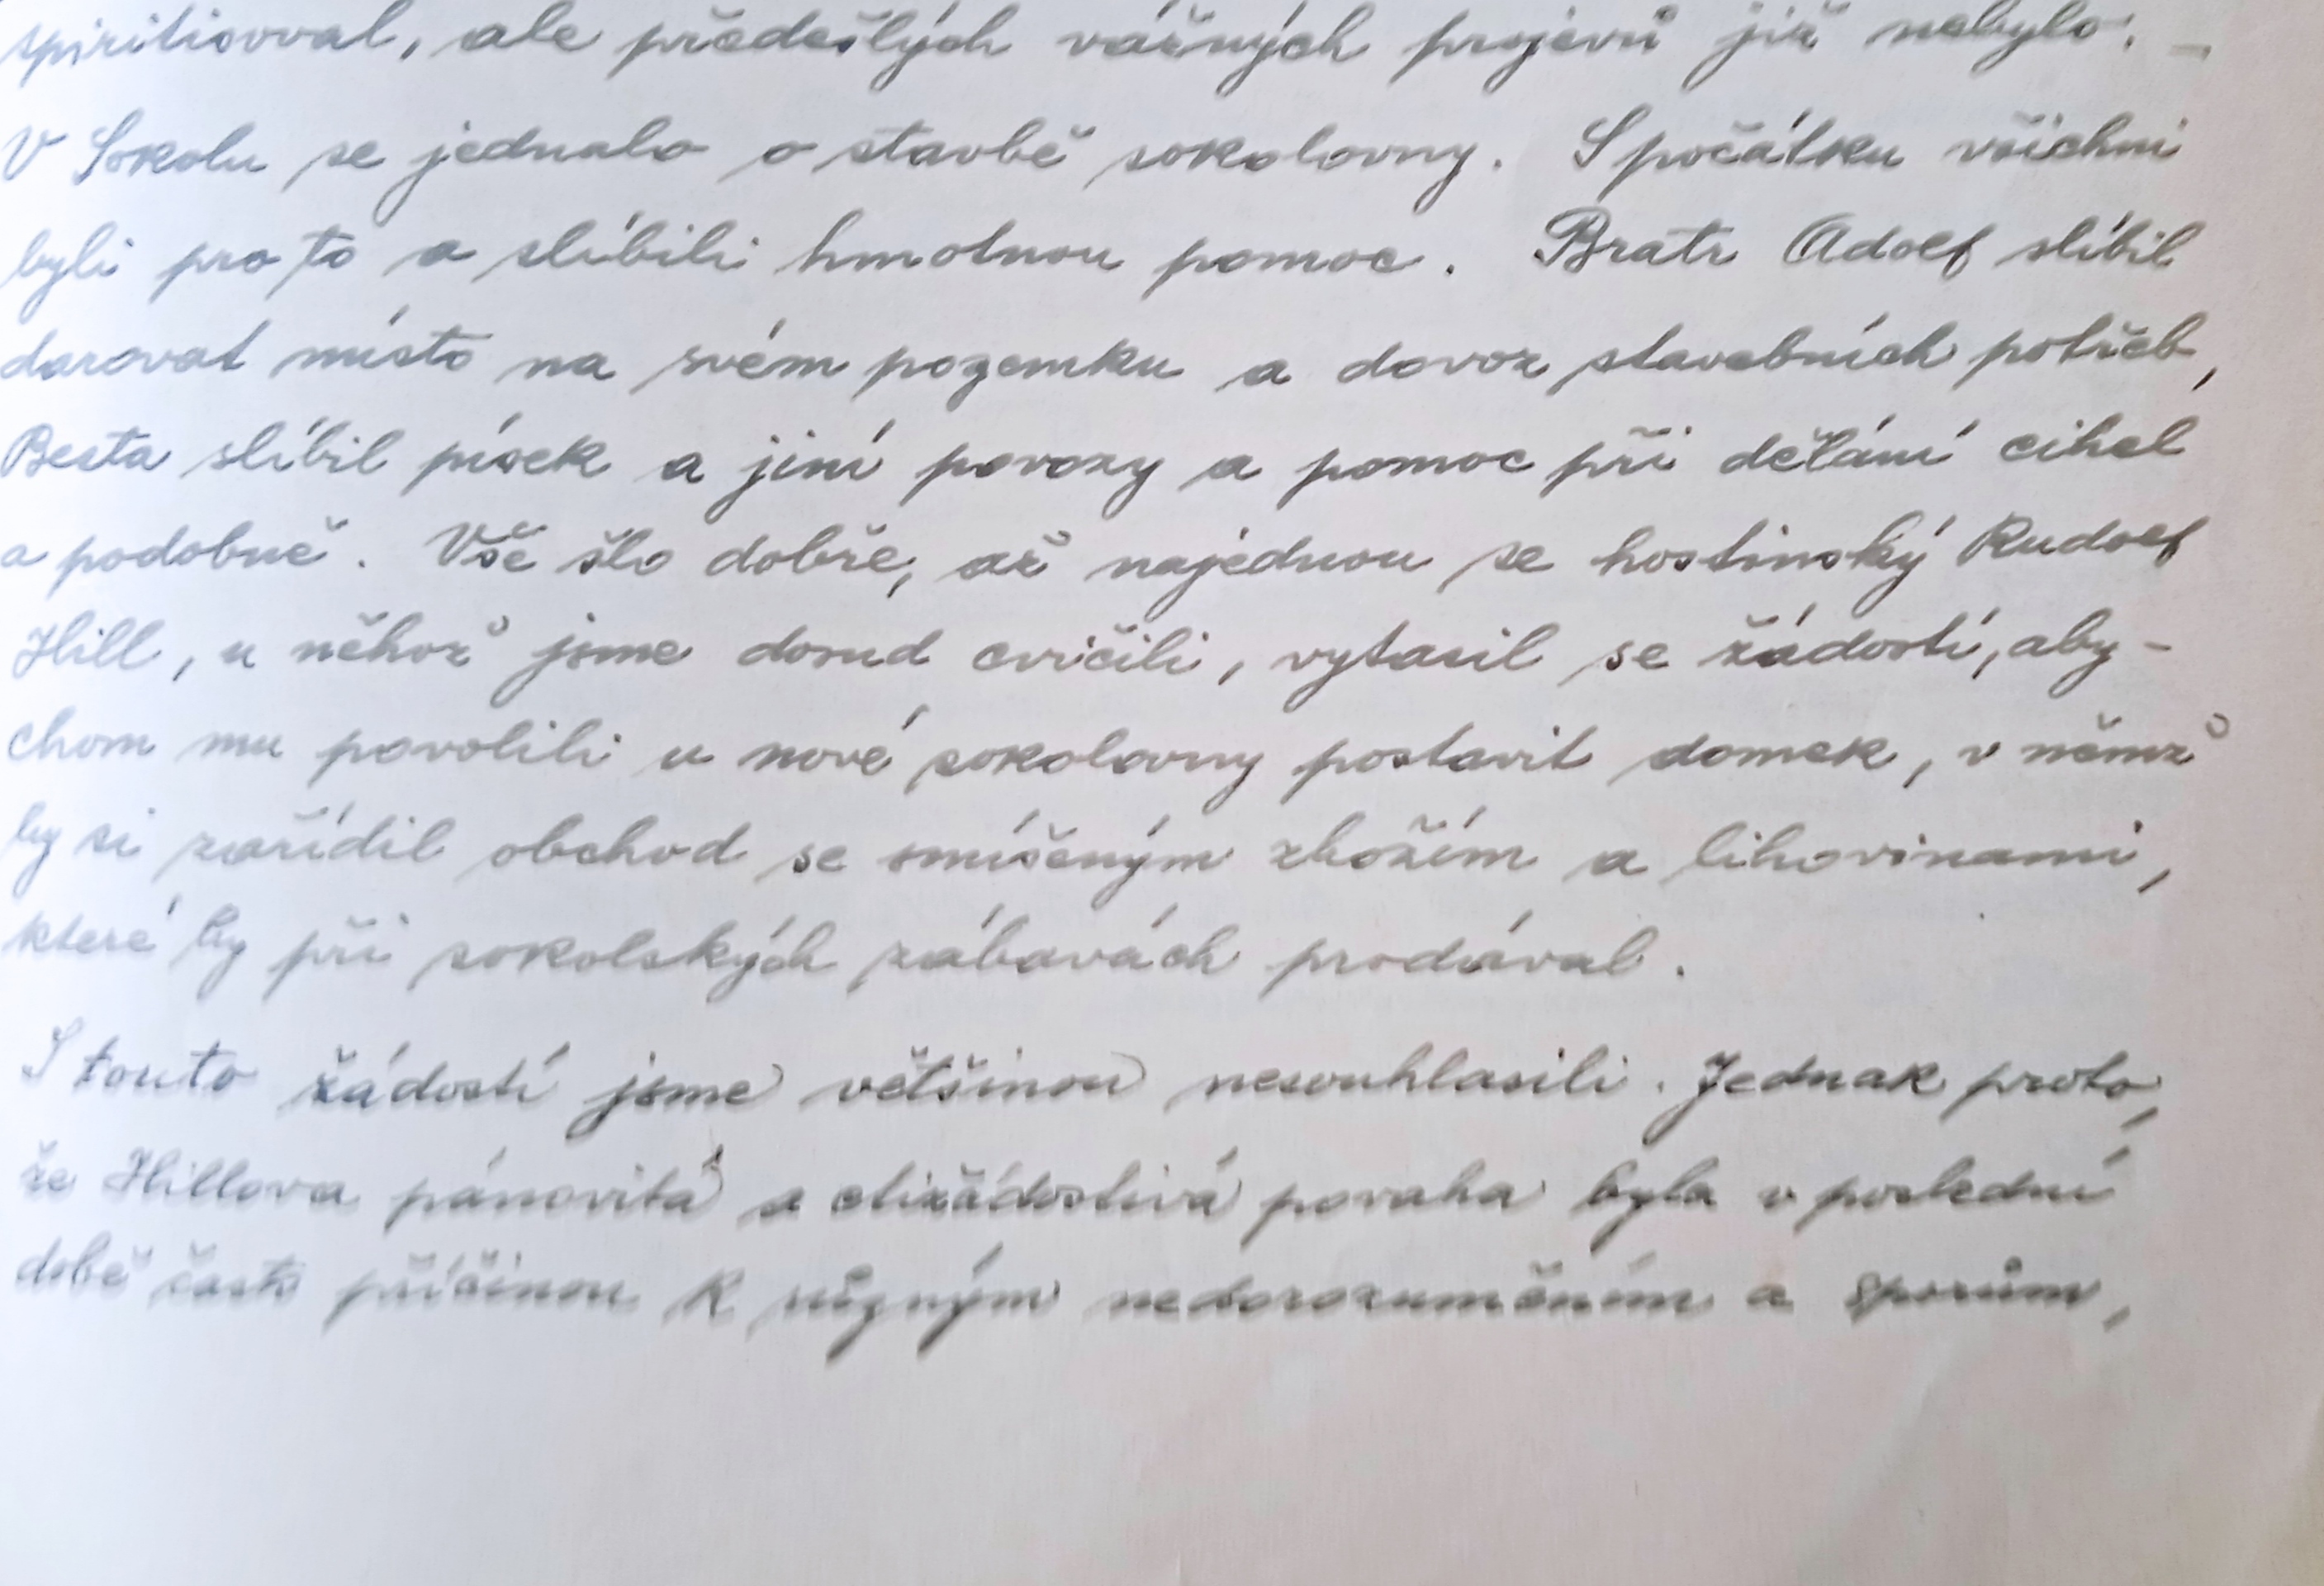 spiritisoval, ale předešlých vážných projevů již nebylo. –
V Sokolu se jednalo o stavbě sokolovny. S počátku všichni
byli pro to a slíbili hmotnou pomoc. Bratr Adolf slíbil
darovat místo na svém pozemku a dovoz stavebních potřeb,
Besta slíbil písek a jiní povozy a pomoc při dělání cihel
a podobně. Vše šlo dobře, až najednou se hostinský Rudolf
Hill, u něhož jsme dosud cvičili, vytasil se žádostí, aby-
chom mu povolili u nové sokolovny postavit domek, v němž
by si zařídil obchod se smíšeným zbožím a lihovinami,
které by při sokolských zábavách prodával.
S touto žádostí jsme většinou nesouhlasili. Jednak proto,
že Hillova pánovitá a ctižádostivá povaha byla v poslední
době často příčinou k různým nedorozuměním a sporům,